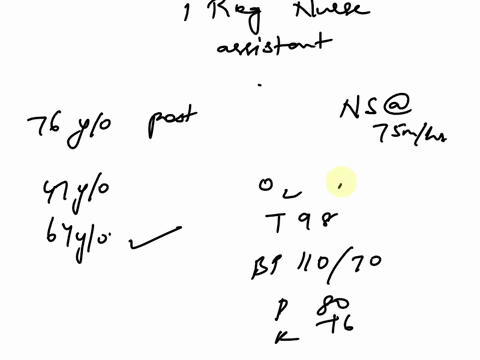 1 Reg Nurse
assistant
76 y/o post
NS@
75m/hr
47 y/o
64 y/o.
O₂
T 98
BP 110/70
P 80
16